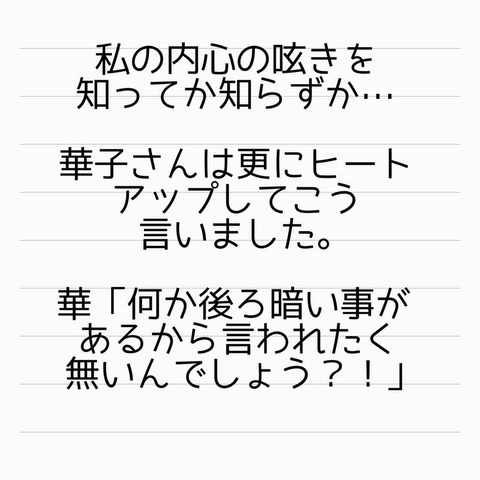 私の内心の呟きを
知ってか知らずか…
華子さんは更にヒート
アップしてこう
言いました。
華「何か後ろ暗い事が
あるから言われたく
無いんでしょう？！」